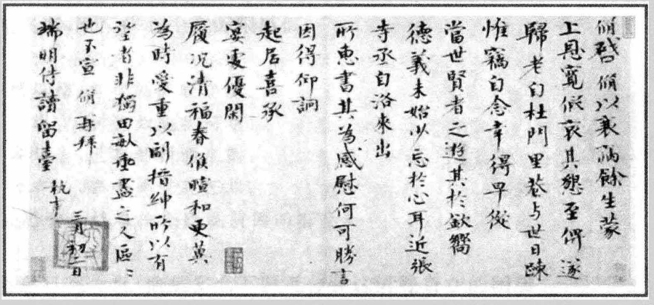 脩啓脩以衰病餘生蒙
上恩寬假哀其懇至俾遂
歸老自杜門里巷与世日疎
惟竊自念幸得早從
當世賢者之遊其於欽嚮
德義未始少忘於心耳近張
寺丞自洛來出
所惠書其為感慰何可勝言
因得仰詢
起居喜承
宴處優閑
履況清福春候暄和更冀
為時愛重以副搢紳所以有
望者非獨田畝垂盡之人區區
也不宣脩再拜
端明侍讀留臺執事
三月初二日